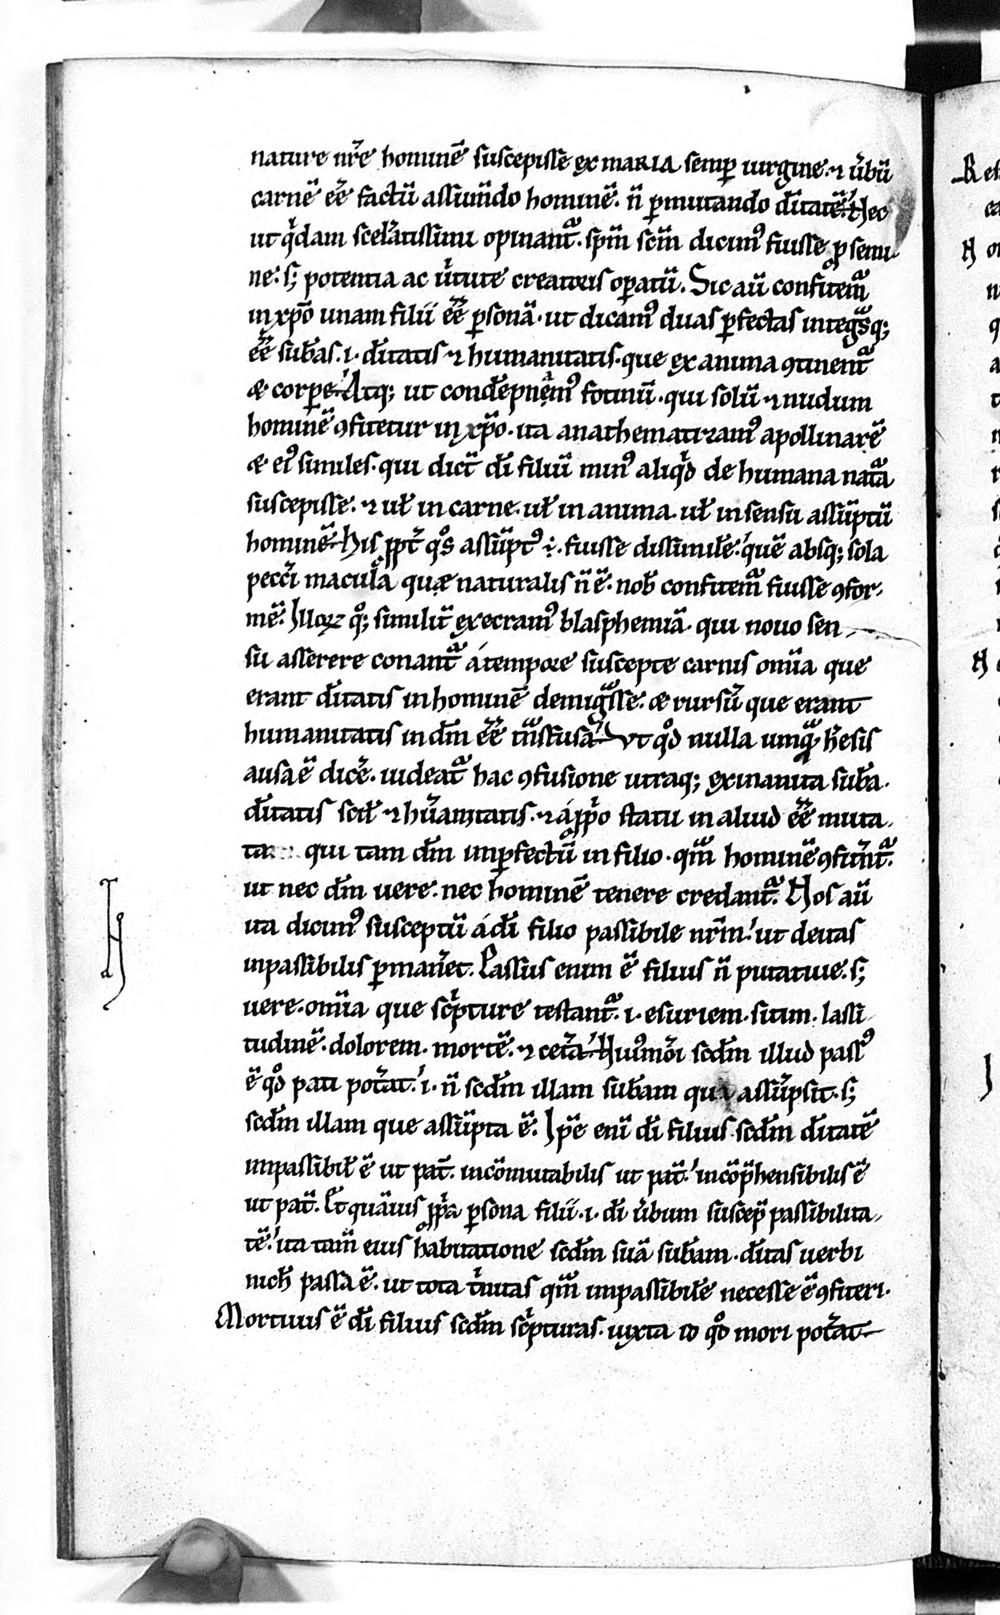 nature nr̄e hominē suscepisse ex MARIA semꝑ uirgine. ⁊ u̓bū
carnē eē factū assum̄do hominē. n̄ ꝑmutando d̄itatē. Nec
ut qͥdam scel̓atissimi opinant᷑. sp̄m sc̄m dicimꝰ fuisse ꝓ semi-
ne. s; potentia ac u̓tute creatoris oꝑatū. Sic aū confitem᷑
in xp̄o unam filii eē̄ ꝑsonā. ut dicamꝰ duas ꝑfectas integͣsq;
eē̄ subās. i. d̄itatis ⁊ humanitatis. que ex anima ꝯtinent᷑
æ corꝑe. Atq; ut condēpnem̓ꝰ fotinū. qui solū ⁊ nudum
hominē ꝯfitetur in xp̄o. ita anathematizamꝰ apollinarē
æ eiꝰ similes. qui dict̄ dī filiū minꝰ aliqͥd de humana nat᷑a
suscepisse. ⁊ uł in carne. uł in anima. uł in sensu assūptū
hominē. His ꝓpt̓ qͦs assūptꝰ ÷. fuisse dissimilē. quē absq; sola
pecc̄i macula quæ naturalis n̄ ē. nob̄ confitem᷑ fuisse ꝯfor-
mē. Illoꝝ qͦ; similit̄ execramꝰ blasphemiā. qui nouo sen
su asserere conant᷑ á tempore suscepte carnis om̄ia que
erant d̄itatis in hominē demigͣsse. æ rursū que erant
humanitatis in dm̄ eē̄ tͣnsfusa. Vt qͦd nulla umqͣ h̓esis
ausa ē dic̓e. uideat᷑ hac ꝯfusione utraq; exinanita subā.
d̄itatis scił ⁊ hūanitatis. ⁊ á ꝓpͥo statu in aliud eē̄ muta-
ta qui tam dm̄ inꝑfectū in filio. qm̄ hominē ꝯfitent᷑.
ut nec dm̄ uere. nec hominē tenere credant᷑. Nos aū
ita dicimꝰ susceptū á dī filio passibile nr̄m. ut deitas
inpassibilis ꝑman̓et. Passus enim ē filius n̄ putatiue. s;
uere. om̄ia que scͥpture testant᷑. i. esuriem. sitim. lassi
tudinē. dolorem. mortē. ⁊ cet̓a. Huiꝰmōi sedm illud passꝰ
ē qͦd pati pot̓at. i. n̄ sedm illam subām que assūpsit. s;
sedm illam que assūpta ē. Ip̄e enī dī filius sedm d̄itatē
impassibił ē ut pat̄. incōmutabilis ut pat̄. incōp̄hensibilis ē
ut pat̄. Et quāuis ꝓpͥa ꝑsona filii. i. dī u̓bum suscep̄ passibilita-
tē. ita tam̄ eius habitatione sedm suā subām. d̄itas uerbi
nich̄ passa ē. ut tota t̓nitas qm̄ impassibilē necesse ē ꝯfiteri.
Mortuus ē dī filius sedm scͥpturas. iuxta id qͦd mori pot̓at
N